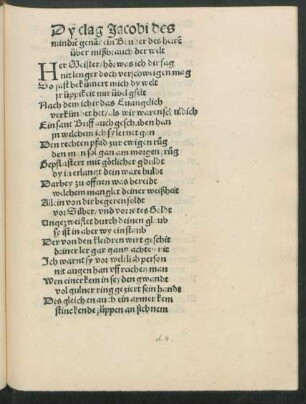 Dy clag Jacobi des
mindn genāt ein Bruder des herrē
über mißbrauch der welt
Her Meister / hör was ich dir sag
nit lenger ich verschwigen mag
So fast bekümert mich dy welt
jr üppikeit mir übel gfelt
Nach dem ich ir das Euangelich
verkündet het / als wir waren schuldich
Ein sant Briff auch geschriben han
zu welchem ich sy lernet gan
Den rechten pfad zur ewigen rüg
den man sol gan am morgen früg
Gepflastert mit götlicher gdulde
dy ia erlangt dein ware hulde
Darbey zu offnen was bereidt
welchem manglet deiner weißheit
Allein von dir begeren solde
vor Silber / vnd vor rotes Golde
Ungezweiflet durch deinen glaub
sy ist in aber wy ein staub
Der von den kleidren wirt geschüt
deiner ler gar gantz achten nit
Ich warnt sy vor weltlich person
nit augen han vff reichen man
Wen einer kem in seyden gwende
vol gulner ring geziert sein hande
Des gleichen auch ein armer kem
stinckende jüppen an sich nem